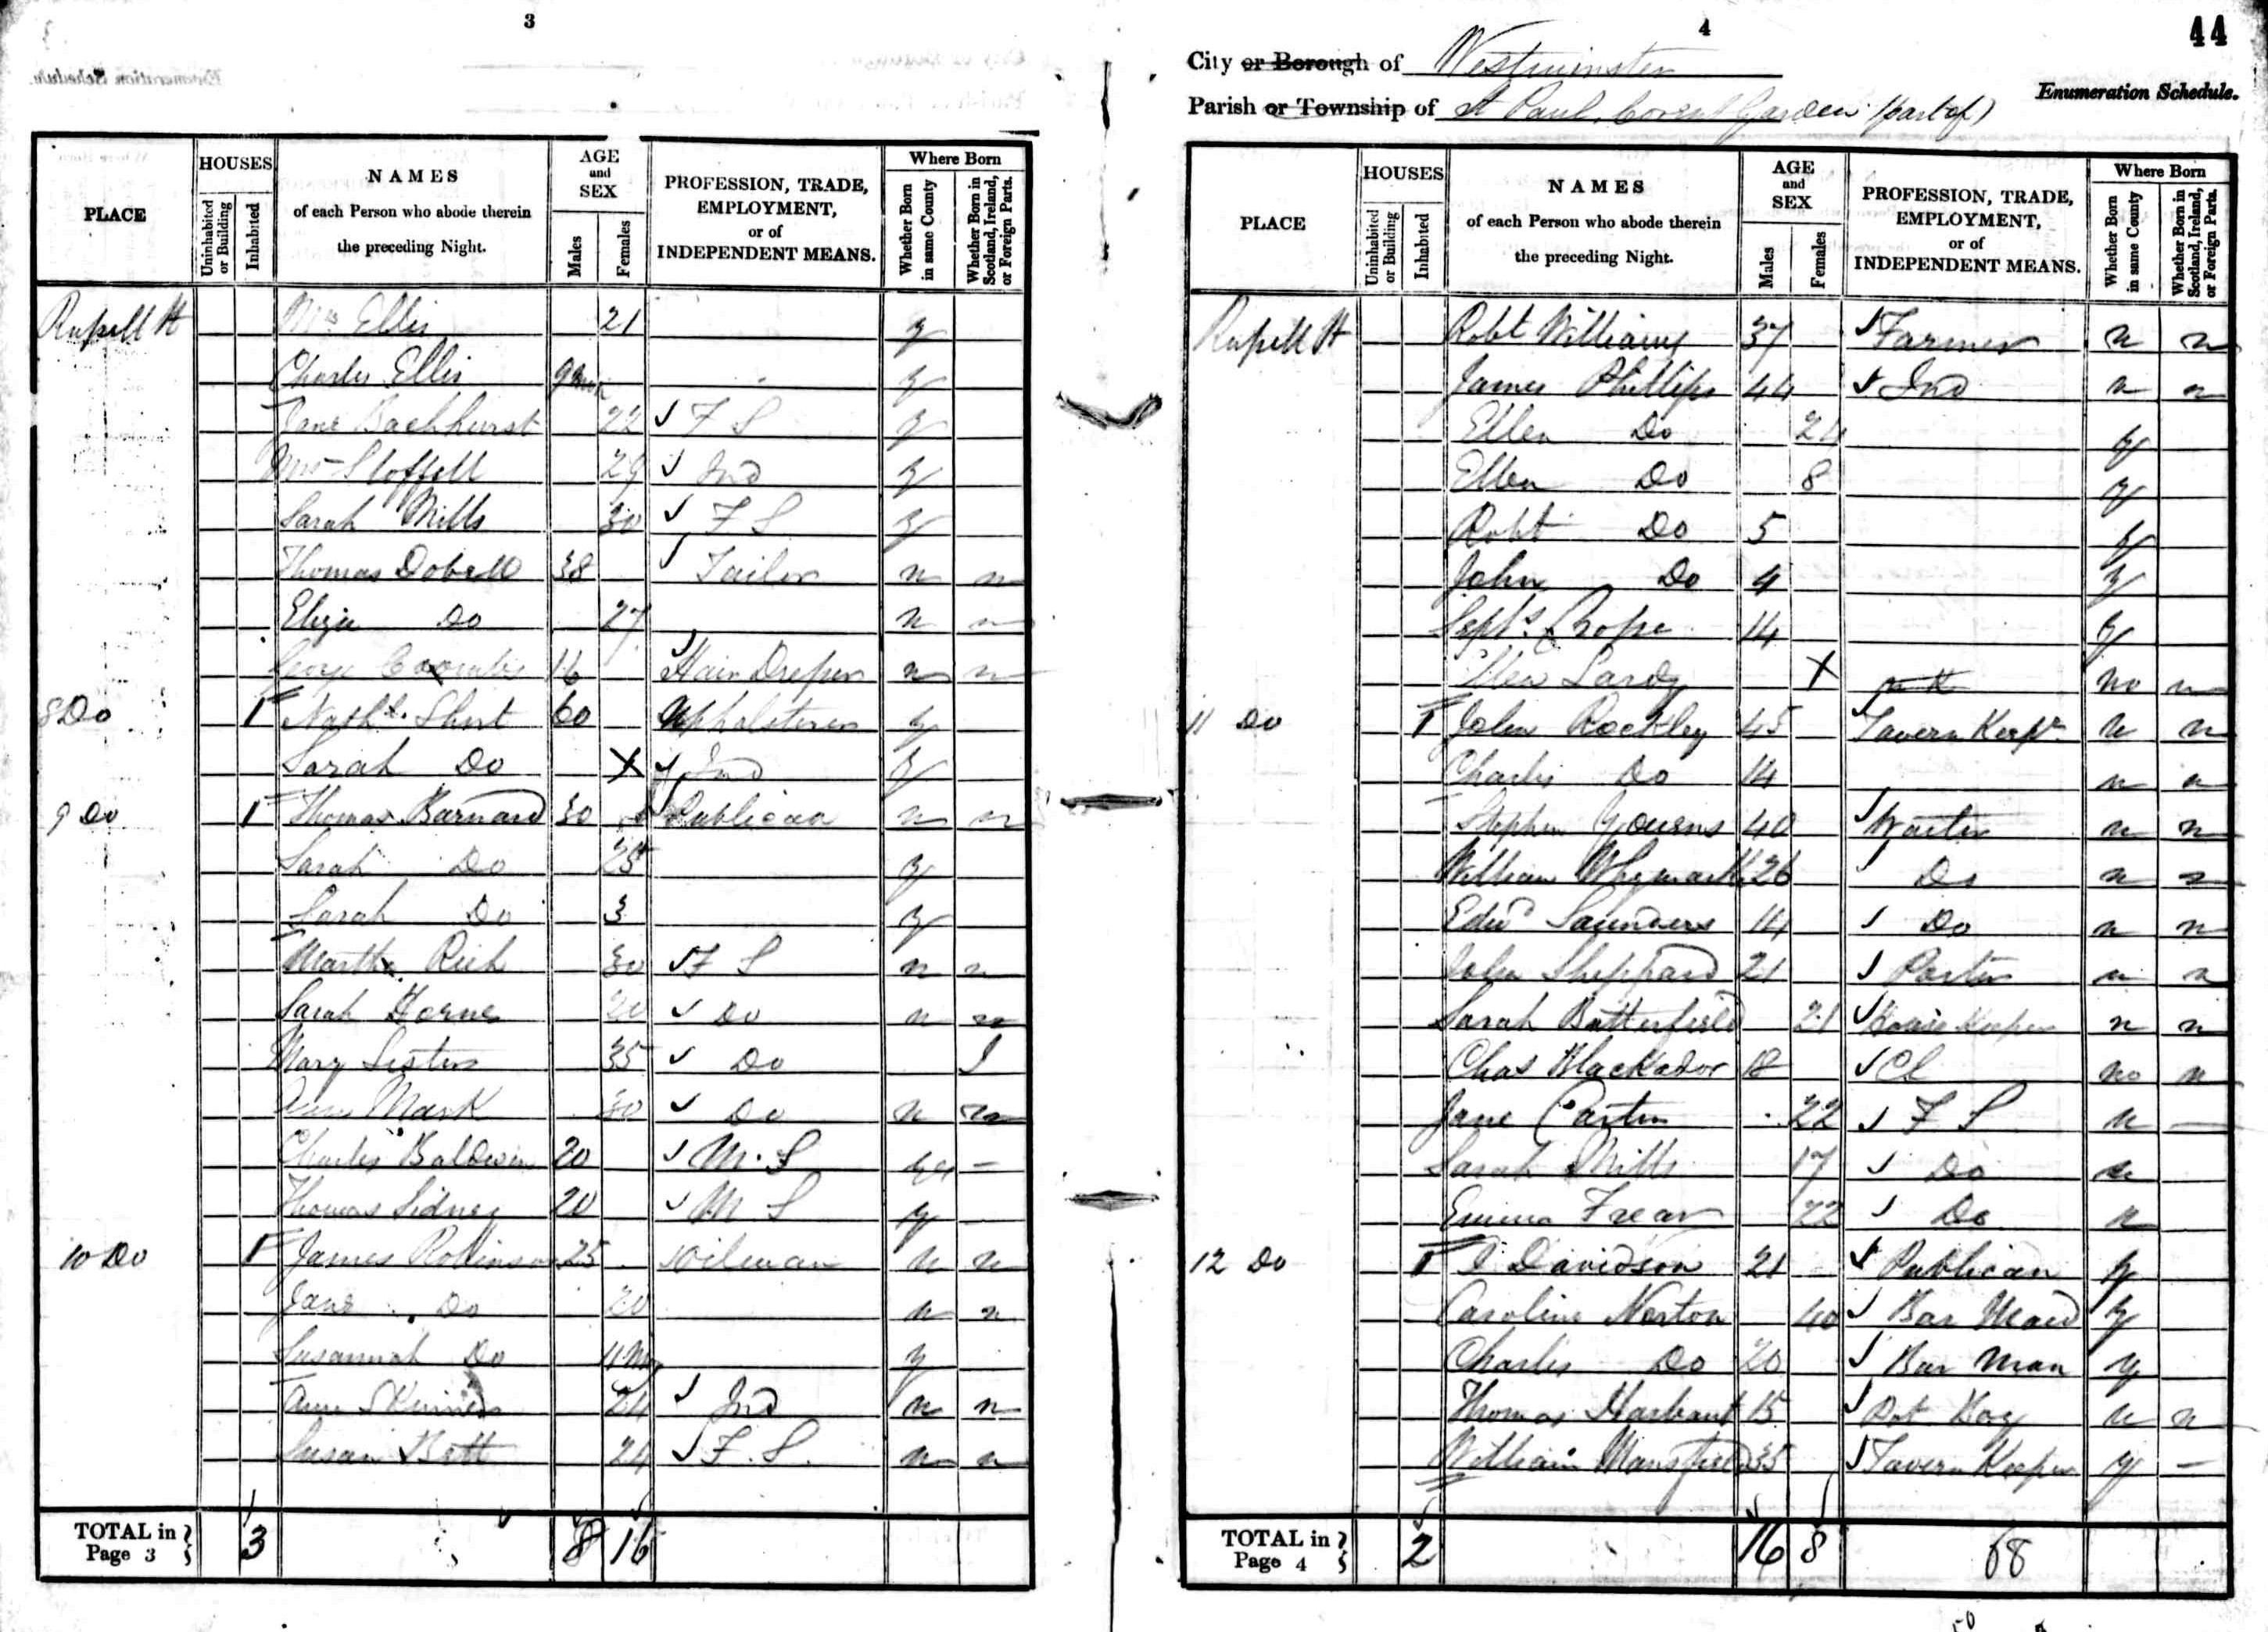 3
PLACE
HOUSES
Uninhabited or Building
Inhabited
NAMES
of each Person who abode therein
the preceding Night.
AGE and SEX
Males
Females
PROFESSION, TRADE,
EMPLOYMENT,
or of
INDEPENDENT MEANS.
Where Born
Whether Born in same County
Whether Born in Scotland, Ireland, or Foreign Parts.
Russell St Mrs Ellis 21 y
Charles Ellis 9 y
Jane Backhurst 22 F S y
Mrs 29 Ind y
Sarah Mills 30 F S y
Thomas Dobell 38 Tailor n n
Eliza Do 27 n n
George 16 Hair Dresser n n
8 Do 1 Nathl. Short 60 Upholsterer y
Sarah Do X Ind y
9 Do 1 Thomas Barnard 30 Publican n n
Sarah Do 25 y
Sarah Do 3 y
Martha Rich 30 F S n n
Sarah Horne 20 Do n n
Mary Lester 35 Do I
Ann Mark 30 Do n n
Charles Baldwin 20 M. S –
Thomas Sidney 20 M S y
10 Do 1 James Robinson 25 Oilman n n
Jane Do 20 n n
Susannah Do 11 y
Ann 24 Ind n n
Susan Bett 24 F. S. n n
TOTAL in Page 3 3 8 16
4
44
City or Borough of Westminster
Parish or Township of St Paul, Covent Garden (part of)
Enumeration Schedule.
PLACE
HOUSES
Uninhabited or Building
Inhabited
NAMES
of each Person who abode therein
the preceding Night.
AGE and SEX
Males
Females
PROFESSION, TRADE,
EMPLOYMENT,
or of
INDEPENDENT MEANS.
Where Born
Whether Born in same County
Whether Born in Scotland, Ireland, or Foreign Parts.
Russell St Robt Williams 37 Farmer n n
James Phillips 44 Ind n n
Ellen Do 24 y
Ellen Do 8 y
Robt Do 5 y
John Do 4 y
Septs. 14 y
Ellen X no n
11 Do 1 John Rockley 45 Tavern Keepr n n
Charles Do 14 n n
Stephen Youens 40 Waiter n n
William Whymark 26 Do n n
Edwd Saunders 14 Do n n
John Sheppard 21 Porter n n
Sarah Butterfield 21 House Keeper n n
Chas Blackador 18 Cl no n
Jane Carter 22 F S n –
Sarah Mills 17 Do n
Emma Frear 22 Do n
12 Do 1 Davidson 21 Publican y
Caroline Norton 40 Bar Maid y
Charles Do 20 Bar Man y
Thomas 15 Pot Boy n n
William Mansfield 35 Tavern Keeper y –
TOTAL in Page 4 2 16 8 68